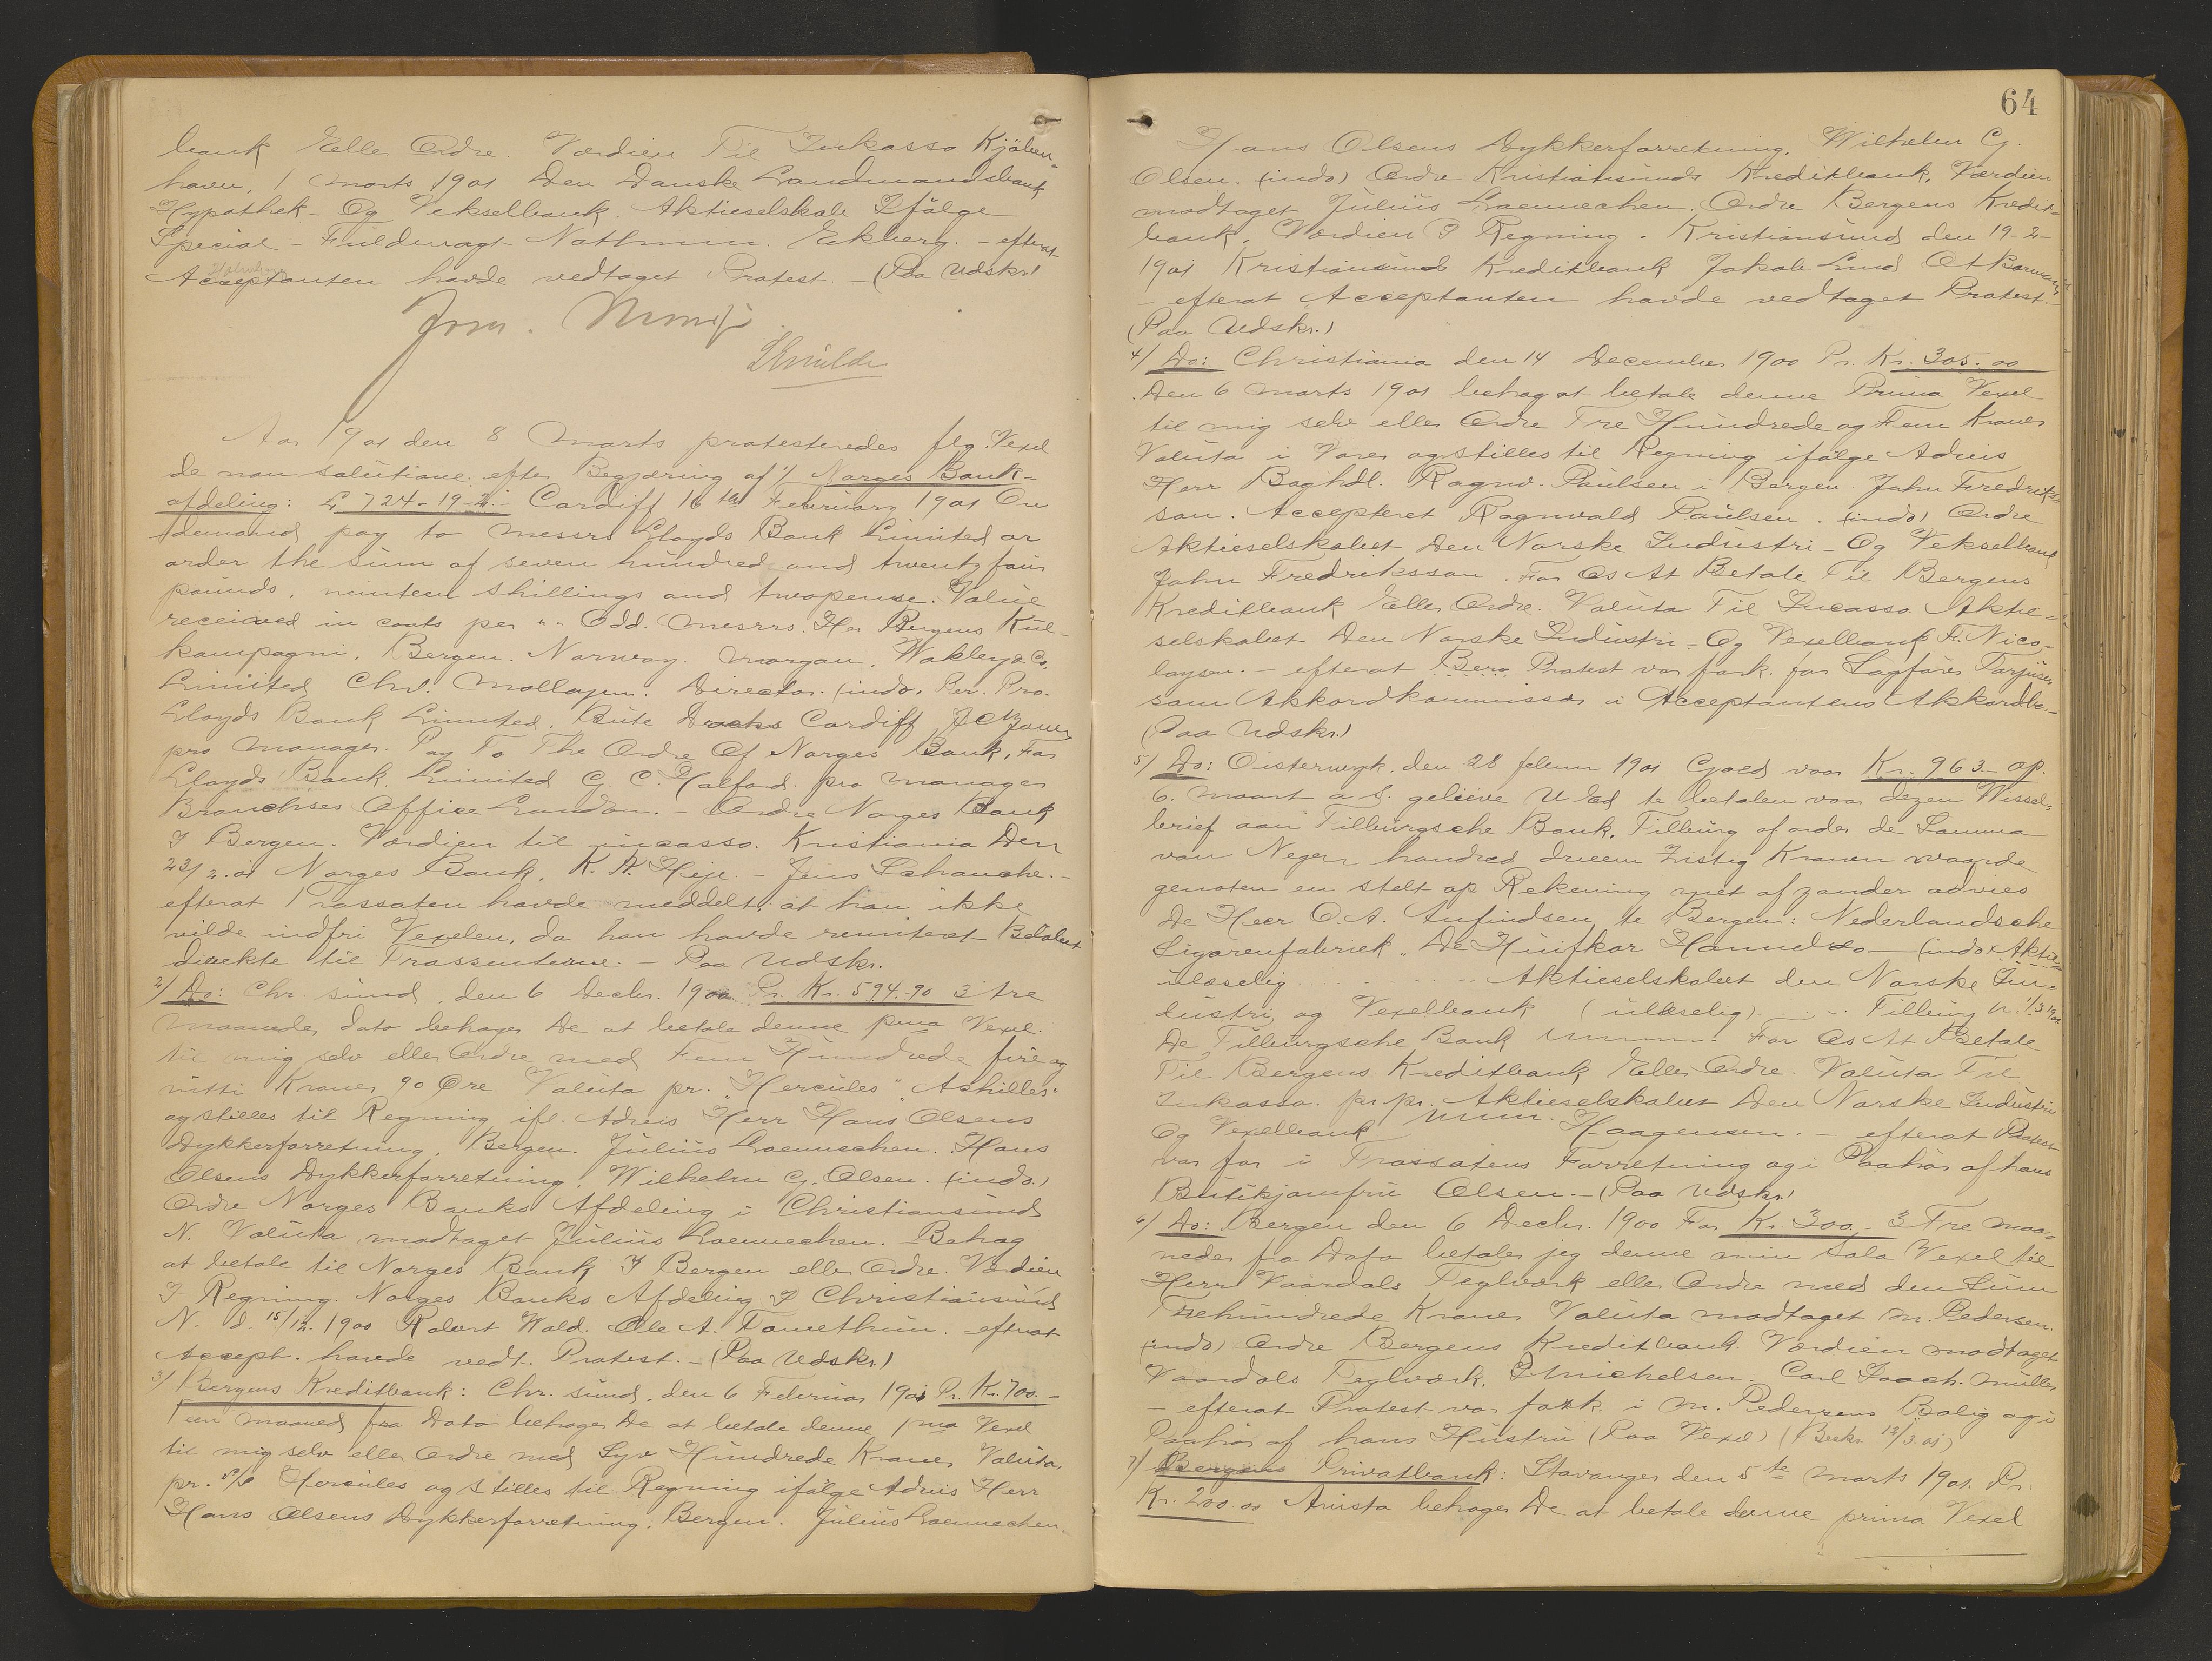 bank Eller Ordre. Værdien Til Inkasso. Kjöben-
havn, 1 Marts 1901 Den Danske Landmandsbank,
Hypothek- Og Vekselbank. Aktieselskab Ifålge
Special-Fuldmagt Nathmm. Eckberg. - efterat
Acceptanten havde vedtaget Protest. - (Paa Udskr.)
Aar 1901 den 8 Marts protesteredes flg. Vexel
de non solutione, efter Begjæring af 1/ Norges Bank-
afdeling: £ 724-19-2.- Cardiff 16th February 1901 On
demand pay to messrs Lloyds Bank Limited or
order the sum of seven hundred and twenty four
pounds, ninteen shillings and twopense. Value
received in coals per " " Odd. Messrs. Her Bergens Kul-
kompagni, Bergen. Norway. Morgan, Wakley & Co.
Limited Director. (indo. Per. Pro.
Lloyds Bank Limited, Bute Docks Cardiff
pro Manager. Pay To The Ordre Of Norges Bank, For
Lloyds Bank Limited G. C. Halford. pro manager
Branchses Office London. - Ordre Norges Bank
I Bergen. Værdien til incasso. Kristiania Den
23/2.01 Norges Bank. K. A. Heje. - Jens Schanche. -
efterat Trassaten havde meddelt, at han ikke
vilde indfri Vexelen, da han havde remiteret Beløbet
direkte til Trassenterne. - Paa Udskr.
2/ Do: Chr.sund, den 6 Decbr. 1900. Pr. Kr. 594.90 3 tre
Maaneder dato behager De at betale denne pma Vexel.
til mig selv eller Ordre med Fem Hundrede fire og
nitti Kroner 90 Øre Valuta pr. "Hercules" "Achilles"
og stilles til Regning ifl. Advis Herr Hans Olsens
Dykkerforretning, Bergen. Julius Loennechen. Hans
Olsens Dykkerforretning. Wilhelm G. Olsen. (indo.)
Ordre Norges Banks Afdeling i Christiansund
N. Valuta modtaget Julius Loennechen. Behag
at betale til Norges Bank I Bergen eller Ordre. Værdien
I Regning. Norges Banks Afdeling I Christiansund
N. d. 15/12. 1900 Robert Wald. Ole A. efterat
Accept. havde vedt. Protest. - (Paa Udskr.)
3/ Bergens Kreditbank: Chr.sund, den 6 Februar 1901 Pr. Kr. 700.-
1 een maaned fra Dato behager De at betale denne pma Vexel
til mig selv eller Ordre med Syv Hundrede Kroner Valuta,
pr. S/S Hercules og stilles til Regning ifålge Advis Herr
Hans Olsens Dykkerforretning, Bergen. Julius Loennechen.
64
Hans Olsens Dykkerforretning, Wilhelm G.
Olsen. (indo) Ordre Kristiansunds Kreditbank, Værdien
modtaget Julius Loennechen. Ordre Bergens Kredit-
bank. Værdien I Regning. Kristiansund den 19-2-
1901 Kristiansunds Kreditbank Jakob Lind
- efterat Acceptanten havde vedtaget Protest.
(Paa Udskr.)
4/ Do: Christiania den 14 December 1900 Pr. Kr. 305.00
Den 6 Marts 1901 behag at betale denne Prima Vexel
til mig selv eller Ordre Tre Hundrede og Fem Kroner
Valuta i Varer og stilles til Regning ifålge Advis
Herr Boghdl. Ragnv. Paulsen i Bergen. John Fredriks-
son. Accepteret Ragnvald Paulsen. (indo) Ordre
Aktieselskabet Den Norske Industri- Og Vekselbank
John Fredriksson. For Os At Betale Til Bergens
Kreditbank Eller Ordre. Valuta Til Incasso. Aktie-
selskabet Den Norske Industri- Og Vexelbank F. Nico-
laysen. - efterat Protest var fork. for Sagfører
som Akkordkommissær i Acceptantens Akkordbo. -
(Paa Udskr.)
5/ Do: Oisterwyk. den 28 februn 1901 Goed voor Kr. 963.- op.
6. Maart a.s. gelieve U Ed te betalen voor dezen Wissel-
brief aan Tilburgsche Bank, Tilburg of order de Somma
van Negen hondred drieem Zistig Kronen waarde
genoten en stelt op Rekening met of zonder advies
De Heer O. A. Anfindsen te Bergen: Nederlandsche
Sigarenfabriek "De Huifkar (indo) Aktie-
ulæselig . . . . . . . Aktieselskabet den Norske In-
dustri og Vexelbank (ulæselig) . . . Tilburg 1/3 1901
De Tilburgsche Bank For Os At Betale
Til Bergens Kreditbank Eller Ordre. Valuta Til
Inkasso. pr pr. Aktieselskabet Den Norske Industri
Og Vexelbank Haagensen. - efterat Protest
var for i Trassatens Forretning og i Paahør af hans
Butikjomfru Olsen. - (Paa Udskr.)
6/ Do: Bergen den 6 Decbr. 1900 For Kr. 300.- 3 Tre maa-
neder fra Dato betaler jeg denne min Sola Vexel til
Herr Vaardals Teglværk eller Ordre med den Sum
Trehundrede Kroner Valuta modtaget M. Pedersen.
(indo) Ordre Bergens Kreditbank. Værdien modtaget
Vaardals Teglværk. Michelsen. Carl Joach. Müller
- efterat Protest var fork. i M. Pedersens Bolig og i
Paahør af hans Hustru (Paa Vexel) (Beskr. 12/3.01)
7/ Bergens Privatbank: Stavanger den 5te Marts 1901. Pr.
Kr. 200.00 Avista behager De at betale denne prima Vexel